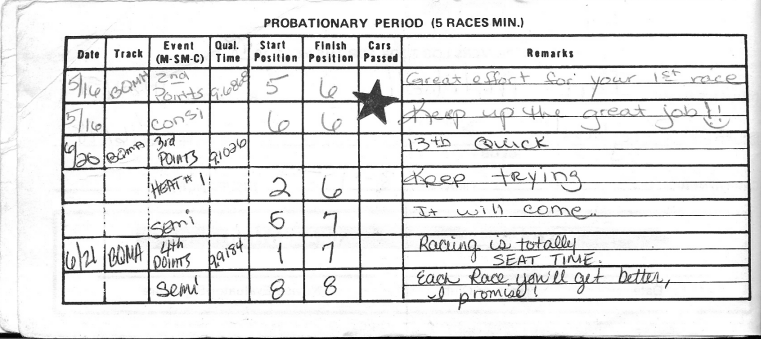 PROBATIONARY PERIOD (5 RACES MIN.)
Date Track Event (M-SM-C) Qual. Time Start Position Finish Position Cars Passed Remarks
5/16 BQMA 2nd Points 9.6868 5 6 Great effort for your 1st race
5/16 Consi 6 6 Keep up the great job!!
6/20 BQMA 3rd POINTS 9.1026 13th Quick
HEAT #1 2 6 Keep trying
Semi 5 7 It will come..
6/21 BQMA 4th POINTS 9.9184 1 7 Racing is totally SEAT TIME.
Semi 8 8 Each Race you'll get better, I promise!